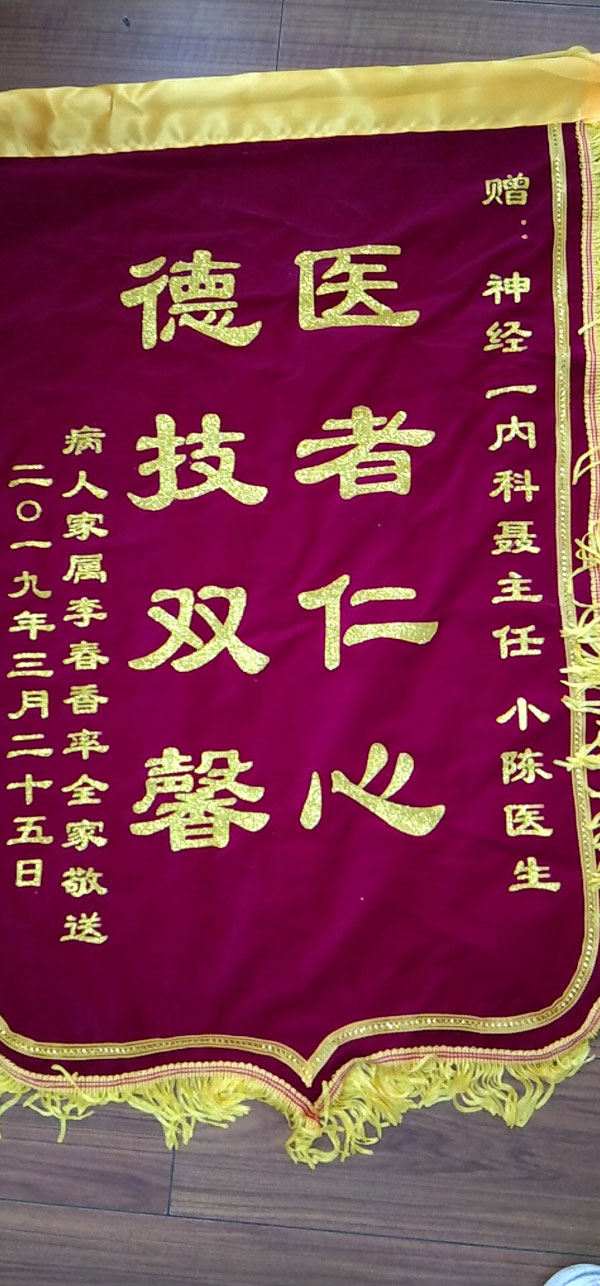 赠：神经一内科聂主任 小陈医生
医者仁心
德技双馨
病人家属李春香率全家敬送
二〇一九年三月二十五日